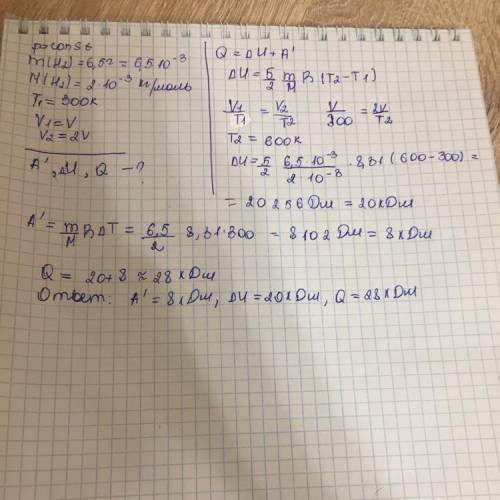 p=const
m(H₂)=6,5г = 6,5·10⁻³
M(H₂)=2·10⁻³ кг/моль
T₁=300к
V₁=V
V₂=2V
A', ΔU, Q - ?
Q = ΔU + A'
ΔU = 5/2 m/M R (T₂-T₁)
V₁/T₁ = V₂/T₂ V/300 = 2V/T₂
T₂ = 600к
ΔU = 5/2 6,5·10⁻³/2·10⁻³ · 8,31 (600-300) =
= 20256 Дж = 20кДж
A' = m/M R ΔT = 6,5/2 8,31·300 = 8102 Дж = 8кДж
Q = 20+8 ≈ 28 кДж
Ответ: A' = 8кДж, ΔU = 20кДж, Q = 28кДж